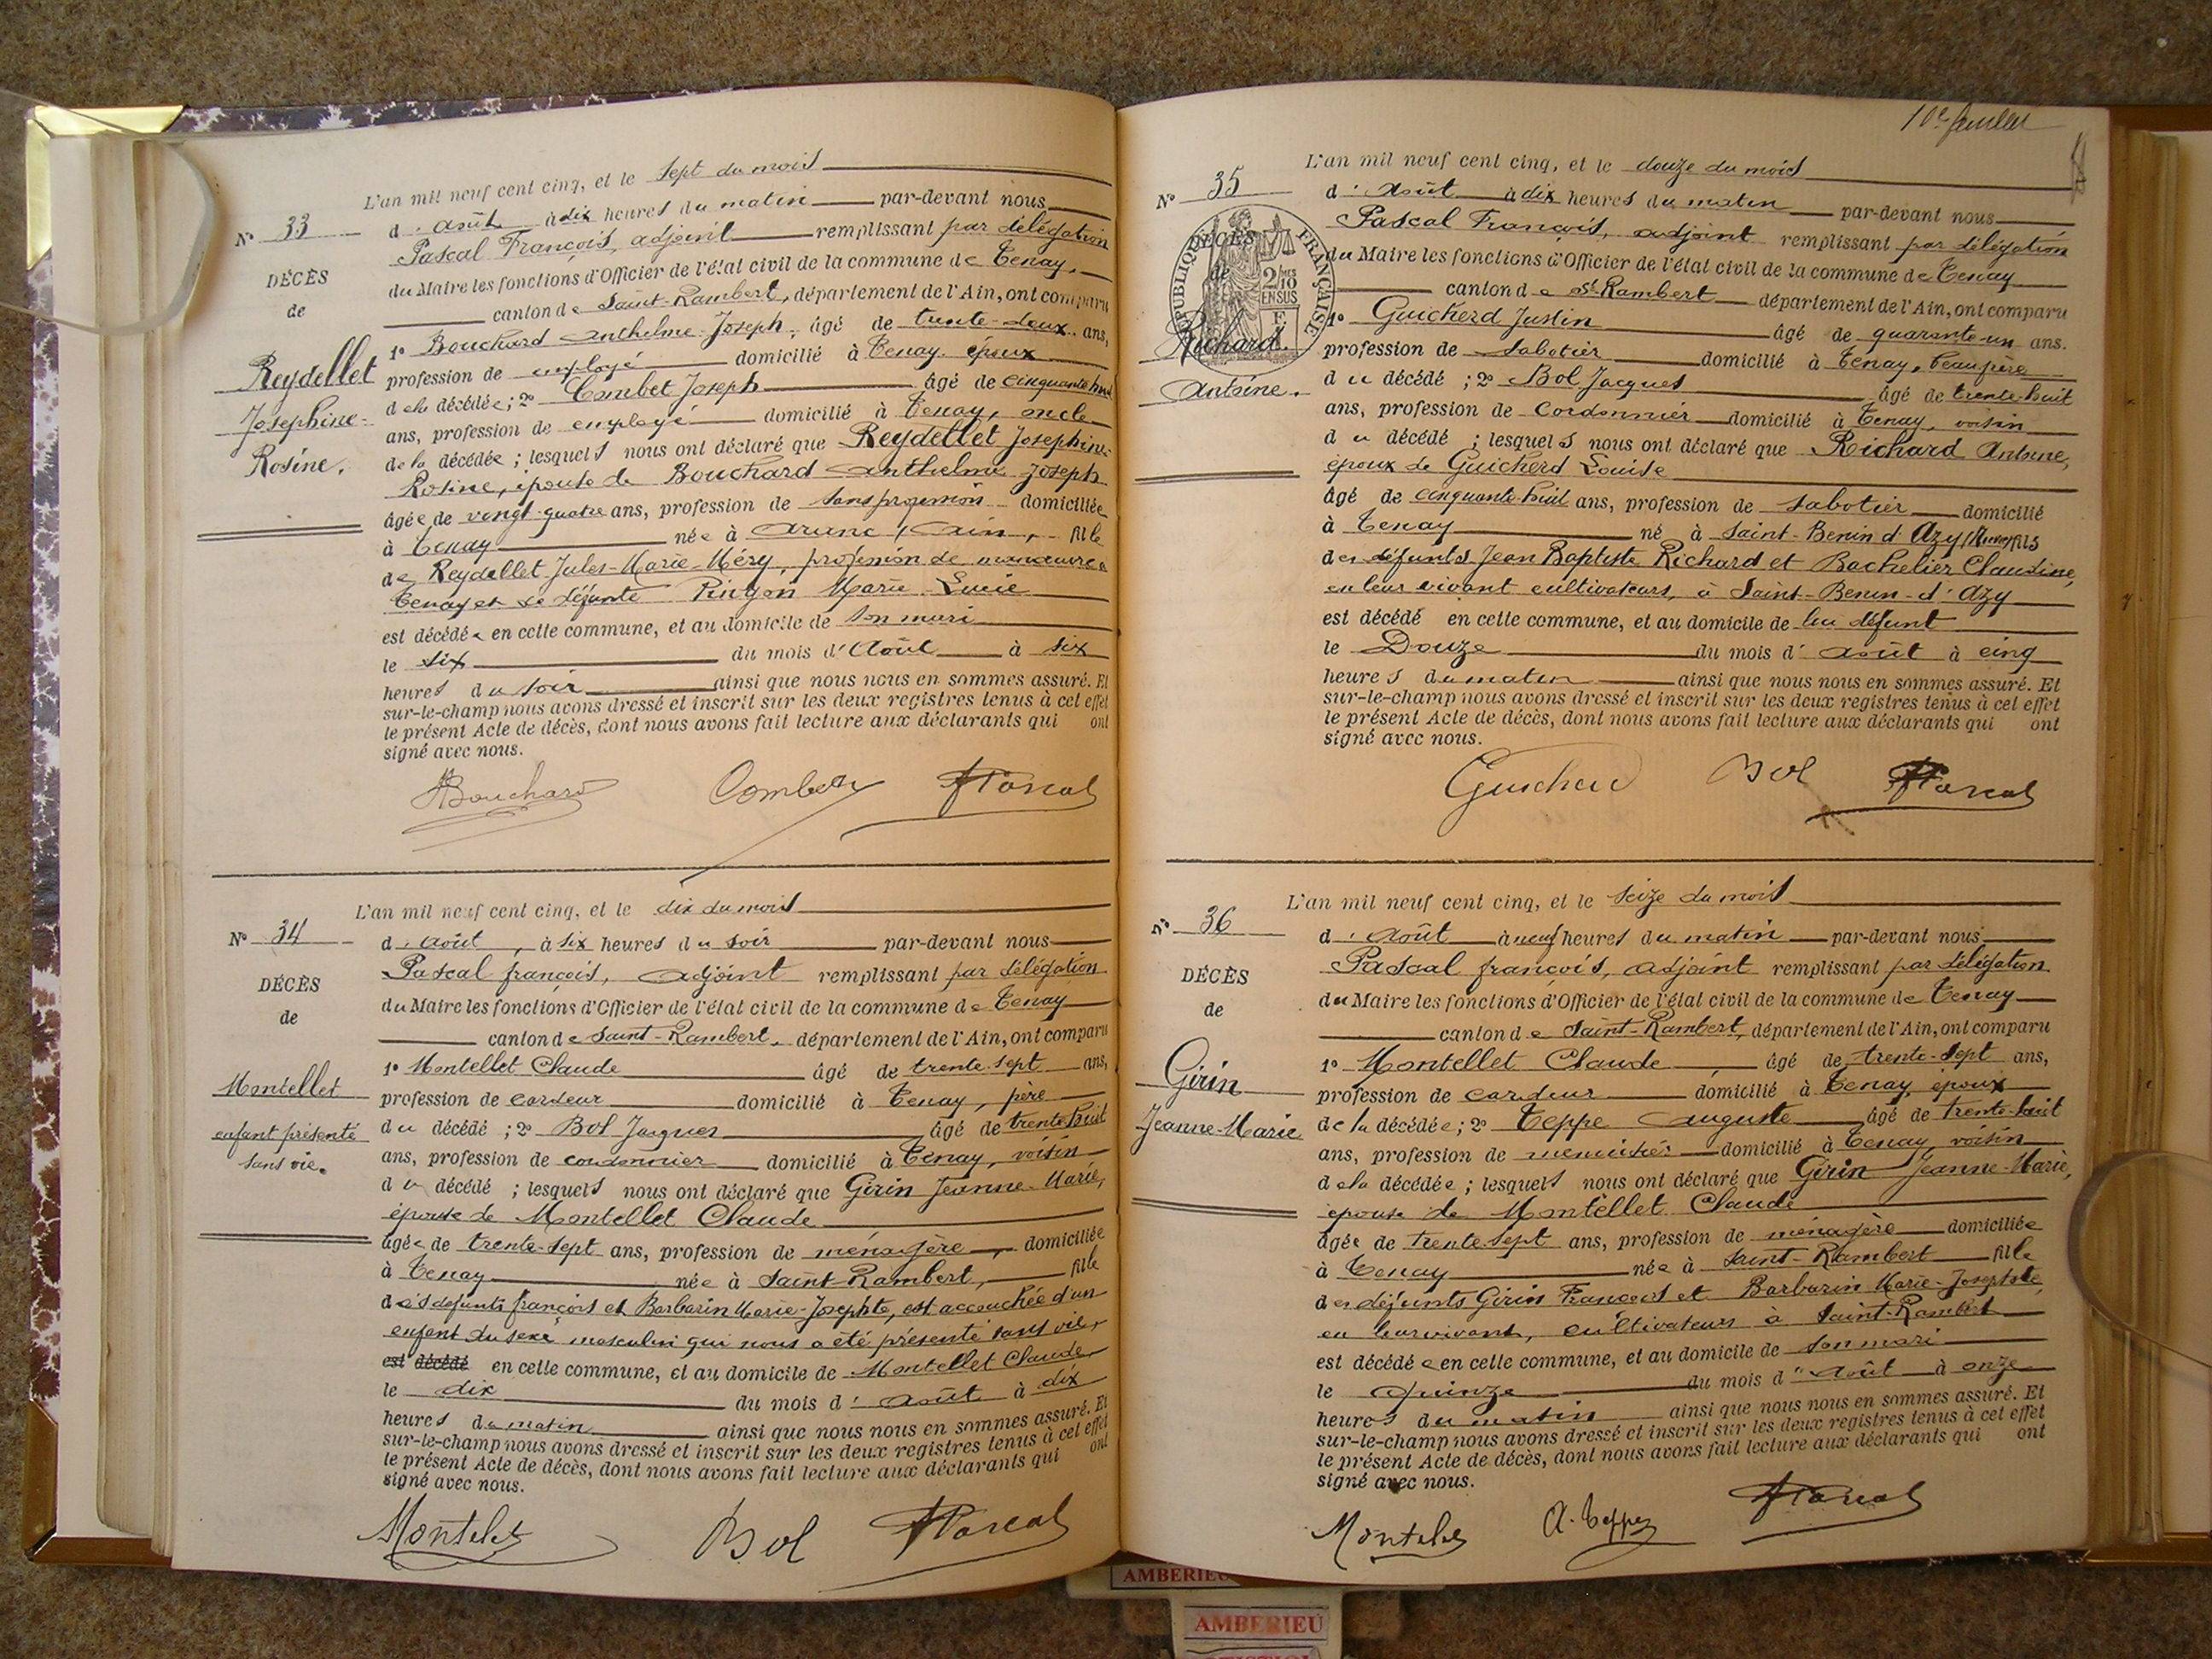 L'an mil neuf cent cinq, et le sept du mois
N° 33
d'août à dix heures du matin par-devant nous
Pascal François, adjoint remplissant par délégation
DÉCÈS
du Maire les fonctions d'Officier de l'état civil de la commune de Tenay,
de
canton de Saint-Rambert, département de l'Ain, ont comparu
1° Bouchard Anthelme-Joseph, âgé de trente-deux ans,
Reydellet
profession de employé domicilié à Tenay, époux
de la décédée; 2° Combet Joseph âgé de cinquante huit
Josephine-
ans, profession de employé domicilié à Tenay, oncle
Rosine.
de la décédée; lesquels nous ont déclaré que Reydellet Josephine
Rosine, épouse de Bouchard Anthelme Joseph
âgée de vingt-quatre ans, profession de sans profession domiciliée
à Tenay née à Aranc, Ain, fille
de Reydellet Jules-Marie-Méry, profession de manoeuvre à
Tenay et de défunte Pingon Marie Lucie
est décédée en cette commune, et au domicile de son mari
le six du mois d'Août à six
heures du soir ainsi que nous nous en sommes assuré. Et
sur-le-champ nous avons dressé et inscrit sur les deux registres tenus à cet effet
le présent Acte de décès, dont nous avons fait lecture aux déclarants qui ont
signé avec nous.
ABouchard Combet FPascal
L'an mil neuf cent cinq, et le dix du mois
N° 34
d'août, à six heures du soir par-devant nous
Pascal françois, adjoint remplissant par délégation
DÉCÈS
du Maire les fonctions d'Officier de l'état civil de la commune de Tenay
de
canton de Saint-Rambert, département de l'Ain, ont comparu
1° Montellet Claude âgé de trente-sept ans,
Montellet
profession de cardeur domicilié à Tenay, père
enfant présenté
du décédé; 2° Bol Jacques âgé de trente huit
sans vie.
ans, profession de cordonnier domicilié à Tenay, voisin
du décédé; lesquels nous ont déclaré que Girin Jeanne-Marie,
épouse de Montellet Claude
âgée de trente-sept ans, profession de ménagère, domiciliée
à Tenay née à Saint-Rambert, fille
des défunts françois et Barbarin Marie-Josephte, est accouchée d'un
enfant du sexe masculin qui nous a été présenté sans vie,
est décédé en cette commune, et au domicile de Montellet Claude
le dix du mois d'Août à dix
heures du matin ainsi que nous nous en sommes assuré. Et
sur-le-champ nous avons dressé et inscrit sur les deux registres tenus à cet effet
le présent Acte de décès, dont nous avons fait lecture aux déclarants qui ont
signé avec nous.
Montelet Bol FPascal
10e feuillet
L'an mil neuf cent cinq, et le douze du mois
N° 35
d'Août à dix heures du matin par-devant nous
Pascal François, adjoint remplissant par délégation
DÉCÈS
RÉPUBLIQUE FRANÇAISE
du Maire les fonctions d'Officier de l'état civil de la commune de Tenay
de
2/10
EN SUS
canton de St-Rambert département de l'Ain, ont comparu
1° Guicherd Justin âgé de quarante-un ans.
Richard
profession de Sabotier domicilié à Tenay, beau père
Antoine.
du décédé; 2° Bol Jacques âgé de trente-huit
ans, profession de Cordonnier domicilié à Tenay, voisin
du décédé; lesquels nous ont déclaré que Richard Antoine,
époux de Guicherd Louise
âgé de cinquante-huit ans, profession de Sabotier domicilié
à Tenay né à Saint-Benin d'Azy fils
des défunts Jean Baptiste Richard et Bachelier Claudine,
en leur vivant cultivateurs, à Saint-Benin-d'Azy
est décédé en cette commune, et au domicile de lui défunt
le Douze du mois d'août à cinq
heures du matin ainsi que nous nous en sommes assuré. Et
sur-le-champ nous avons dressé et inscrit sur les deux registres tenus à cet effet
le présent Acte de décès, dont nous avons fait lecture aux déclarants qui ont
signé avec nous.
Guicherd Bol FPascal
L'an mil neuf cent cinq, et le seize du mois
N° 36
d'Août à neuf heures du matin par-devant nous
Pascal françois, adjoint remplissant par délégation
DÉCÈS
du Maire les fonctions d'Officier de l'état civil de la commune de Tenay
de
canton de Saint-Rambert, département de l'Ain, ont comparu
1° Montellet Claude âgé de trente-sept ans,
Girin
profession de cardeur domicilié à Tenay, époux
Jeanne-Marie
de la décédée; 2° Teppe Auguste âgé de trente-huit
ans, profession de menuisier domicilié à Tenay, voisin
de la décédée; lesquels nous ont déclaré que Girin Jeanne-Marie,
épouse de Montellet Claude
âgée de trente-sept ans, profession de ménagère domiciliée
à Tenay née à Saint-Rambert fille
des défunts Girin François et Barbarin Marie-Josephte,
en leur vivant, cultivateurs à Saint-Rambert
est décédée en cette commune, et au domicile de son mari
le quinze du mois d'Août à onze
heures du matin ainsi que nous nous en sommes assuré. Et
sur-le-champ nous avons dressé et inscrit sur les deux registres tenus à cet effet
le présent Acte de décès, dont nous avons fait lecture aux déclarants qui ont
signé avec nous.
Montelet A. Teppe FPascal
AMBERIEU
AMBERIEU